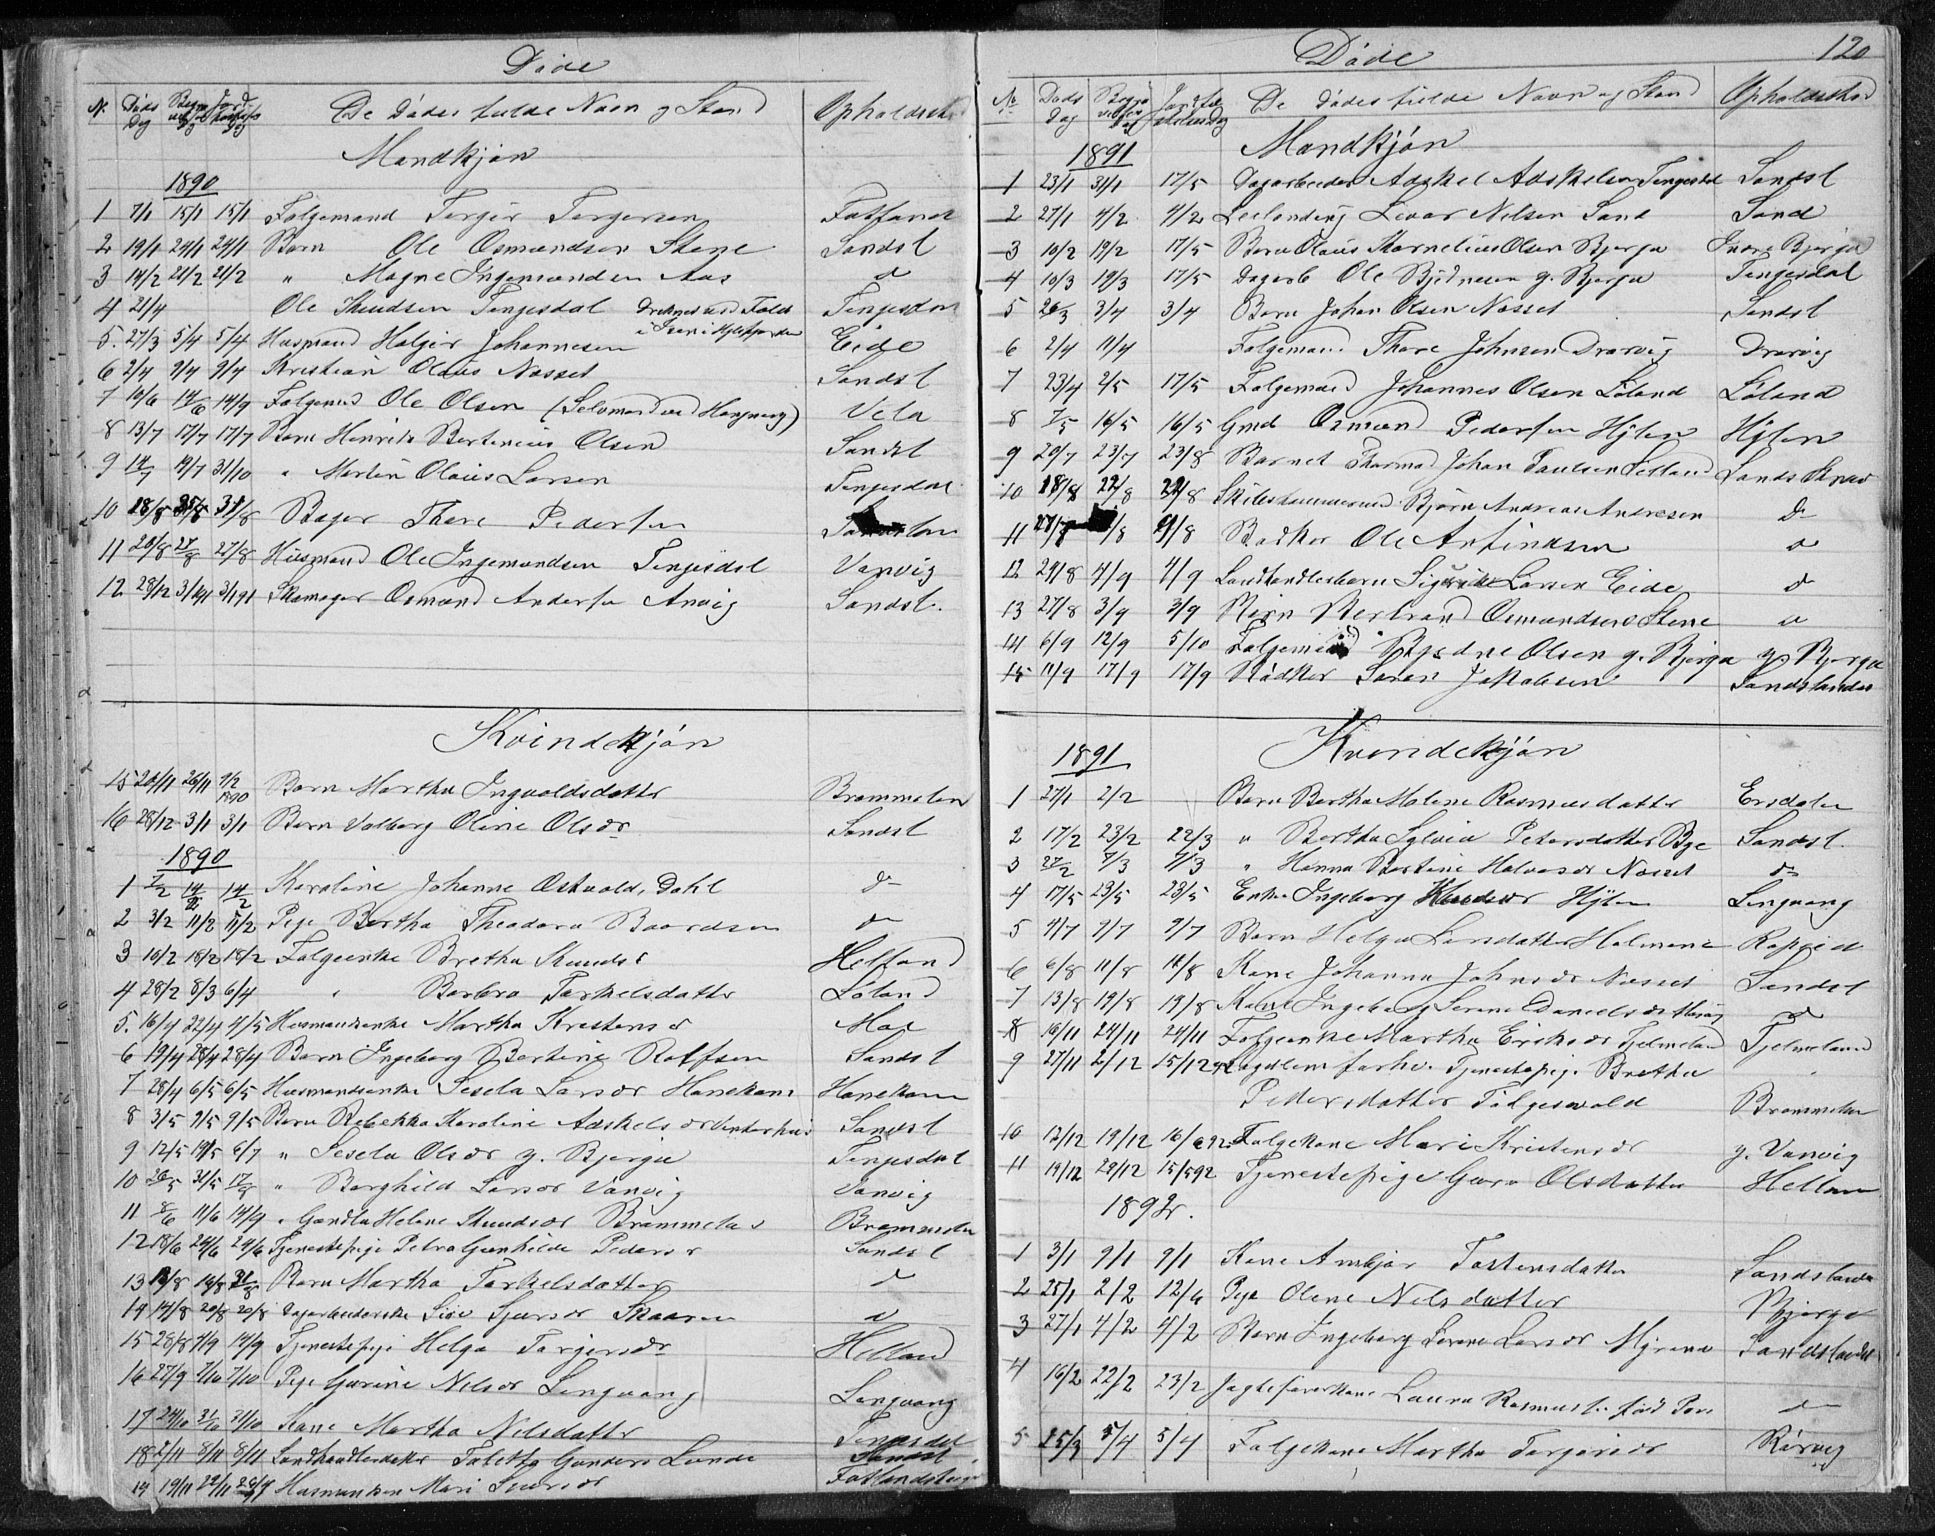 Døde
N. Døds Dag De Dødes fulde Navn og Stand Opholdssted
Mandkjøn
1890
1 7/1 15/1 15/1 Folgemand Torger Torgersen Fatland
2 19/1 24/1 24/1 Barn Ole Osmundsen Stene Sandsl
3 14/2 21/2 21/2 " Magne Ingemundsen Aas d
4 21/4 Ole Knudsen Tengesdal Tengesdal
5. 27/3 5/4 5/4 Husmand Holger Johannesen Eide
6 2/4 9/4 9/4 Kristian Olaus Næsset Sandsl
7 10/6 14/6 14/9 Folgemd Ole Olsen (Selvmord ved Hængning) Vela
8 13/7 17/7 17/7 Barn Henrik Bertinius Olsen Sandsl
9 14/7 19/7 31/10 " Martin Olaus Larsen Tengesdal
10 18/8 31/8 Bager Thore Pedersen
11 20/8 27/8 27/8 Husmand Ole Ingemundsen Tengesdal Vanvig
12 28/12 3/1 91 3/1 91 Skomager Osmund Andersen Anvig Sandsl.
Kvindekjøn
15 20/11 26/11 7/2 1890 Barn Martha Ingvaldsdatter Brommeland
16 28/12 3/1 3/1 Barn Valborg Oline Olsdr Sandsl
1890
1 7/2 14/2 14/2 Karoline Johanne Ostvalds. Dahl d
2 3/2 11/2 11/2 Pige Bertha Theodora Baardsen d
3 10/2 18/2 18/2 Folgeenke Bretha Knudsd Helland
4 28/2 8/3 6/4 " Barbra Torkelsdatter Løland
5. 16/4 22/4 4/5 Husmandsenke Martha Kristensd Moe
6 19/4 28/4 28/4 Barn Ingeborg Bertine Rolfsen Sandsl
7 28/4 6/5 6/5 Husmandsenke Sesela Larsdr Hanekam Hanekam
8 3/5 9/5 9/5 Barn Rebekka Karoline Adskelsdr Vinterhus Sandsl
9 12/5 19/5 6/7 " Sesela Olsdr y. Bjerga Tengesdal
10 26/5 31/5 17/8 " Borghild Larsdr Vanvig Vanvig
11 8/6 11/6 14/9 " Helene Knudsdr Brommeland Brommeland
12 18/6 24/6 24/6 Tjenestepige Petra Gunhilde Pedersd Sandsl
13 13/8 19/8 31/8 Barn Martha Torkelsdatter d
14 14/8 20/8 20/8 Sjursdr Skaaren d
15 28/8 4/9 14/9 Tjenestepige Helga Torgersdr Helland
16 27/9 7/10 7/10 Pige Gurine Nelsdr Lingvang Lingvang
17 24/10 31/10 31/10 Kone Martha Nelsdatter Tengesdal
18 2/11 8/11 8/11 Landhandlerdatter Gunders Lunde Sandsl
19 19/11 Husmandsen Mari Sjursdr
Døde 120
No Døds Dag De Dødes fulde Navn og Stand Opholdssted
Mandkjøn
1891
1 23/1 31/1 17/5 Dagarbeider Adskel Adskelsen Tengesdal Sandsl
2 27/1 4/2 4/2 Leilending Levar Nelsen Sand Sand
3 10/2 19/2 17/5 Barn Olaus Kornelius Olsen Bjerga Indre Bjerga
4 10/3 19/3 17/5 Dagarb Ole Bjødnesen y. Bjerga Tengesdal
5 26/3 3/4 3/4 Barn Johan Olsen Næsset Sandsl
6 2/4 11/4 Folgemand Thore Johnsen Drarvig Drarvig
7 23/4 2/5 17/5 Folgemand Johannes Olsen Løland Løland
8 7/5 16/5 16/5 Gmd Osmund Pedersen Hylen Hylen
9 20/7 23/7 23/8 Barnet Thormod Johan Paulsen Selland
10 18/8 22/8 22/8 Bjørn Andreas Andresen d
11 Bødker Ole Arfindsen d
12 29/8 4/9 4/9 Landhandlerbarn Sigurd Larsen Eide d
13 27/8 3/9 3/9 Børn Bertrand Osmundsen Stene d
14 6/9 12/9 5/10 Folgemand Bjødne Olsen y. Bjerga y. Bjerga
15 11/9 17/9 17/9 Bødker Søren Jakobsen Sandslandet
Kvindekjøn
1891
1 27/1 2/2 Barn Bertha Malene Rasmusdatter Ersdalen
2 17/2 23/2 22/3 " Bertha Sylvia Petersdatter Bye Sandsl.
3 27/2 7/3 7/3 " Hanna Bertine Halvorsdr Næsset d
4 17/5 23/5 23/5 Enke Ingeborg Knudsdr Hylen Lingvang
5 4/7 9/7 9/7 Barn Helga Larsdatter Holmene Ropeid
6 6/8 11/8 11/8 Kone Johanna Johnsdr Næsset Sandsl
7 13/8 19/8 19/8 Kone Ingeborg Serine Danielsdr d
8 16/11 24/11 24/11 Folgeenke Martha Eriksdr Tjelmeland Tjelmeland
9 27/11 2/12 15/12 Lægdlem forhv. Tjenestepige Bretha
Pedersdatter Brommeland
10 12/12 19/12 16/6 92 Folgekone Mari Kristensdr y. Vanvig
11 19/12 28/12 15/5 92 Tjenestepige Guro Olsdatter Helland
1892.
1 3/1 9/1 9/1 Kone Anbjør Tostensdatter Sandslandet
2 25/1 2/2 12/6 Pige Oline Nelsdatter Bjerge
3 27/1 4/2 4/2 Barn Ingeborg Serene Larsdr Myrene Sandslandet
4 16/2 22/2 23/2 Jagteførerkone Laura Rasmusd. født d
5 25/3 5/4 5/4 Folgekone Martha Torgersdr Rørvig